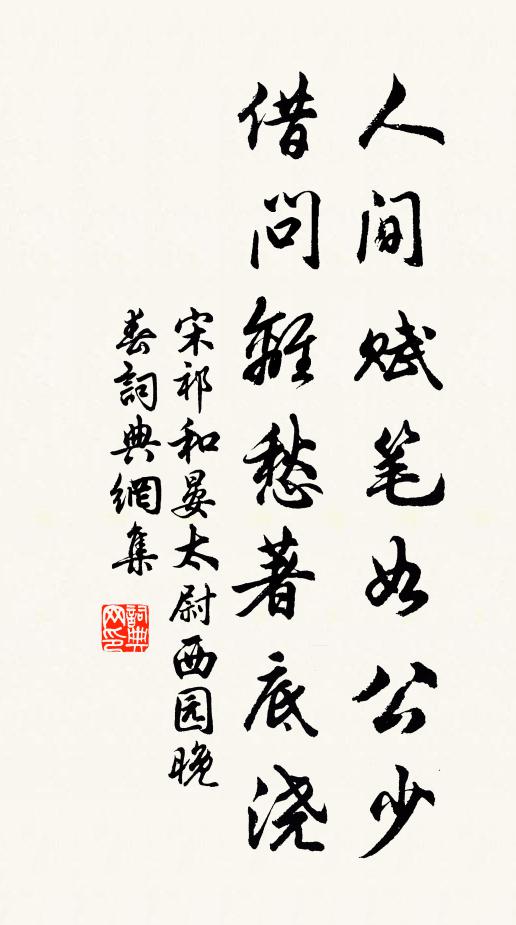 人间赋笔如公少
借问離愁著底浇
宋祁和晏太尉西园晚
春詞典網集
詞典网印